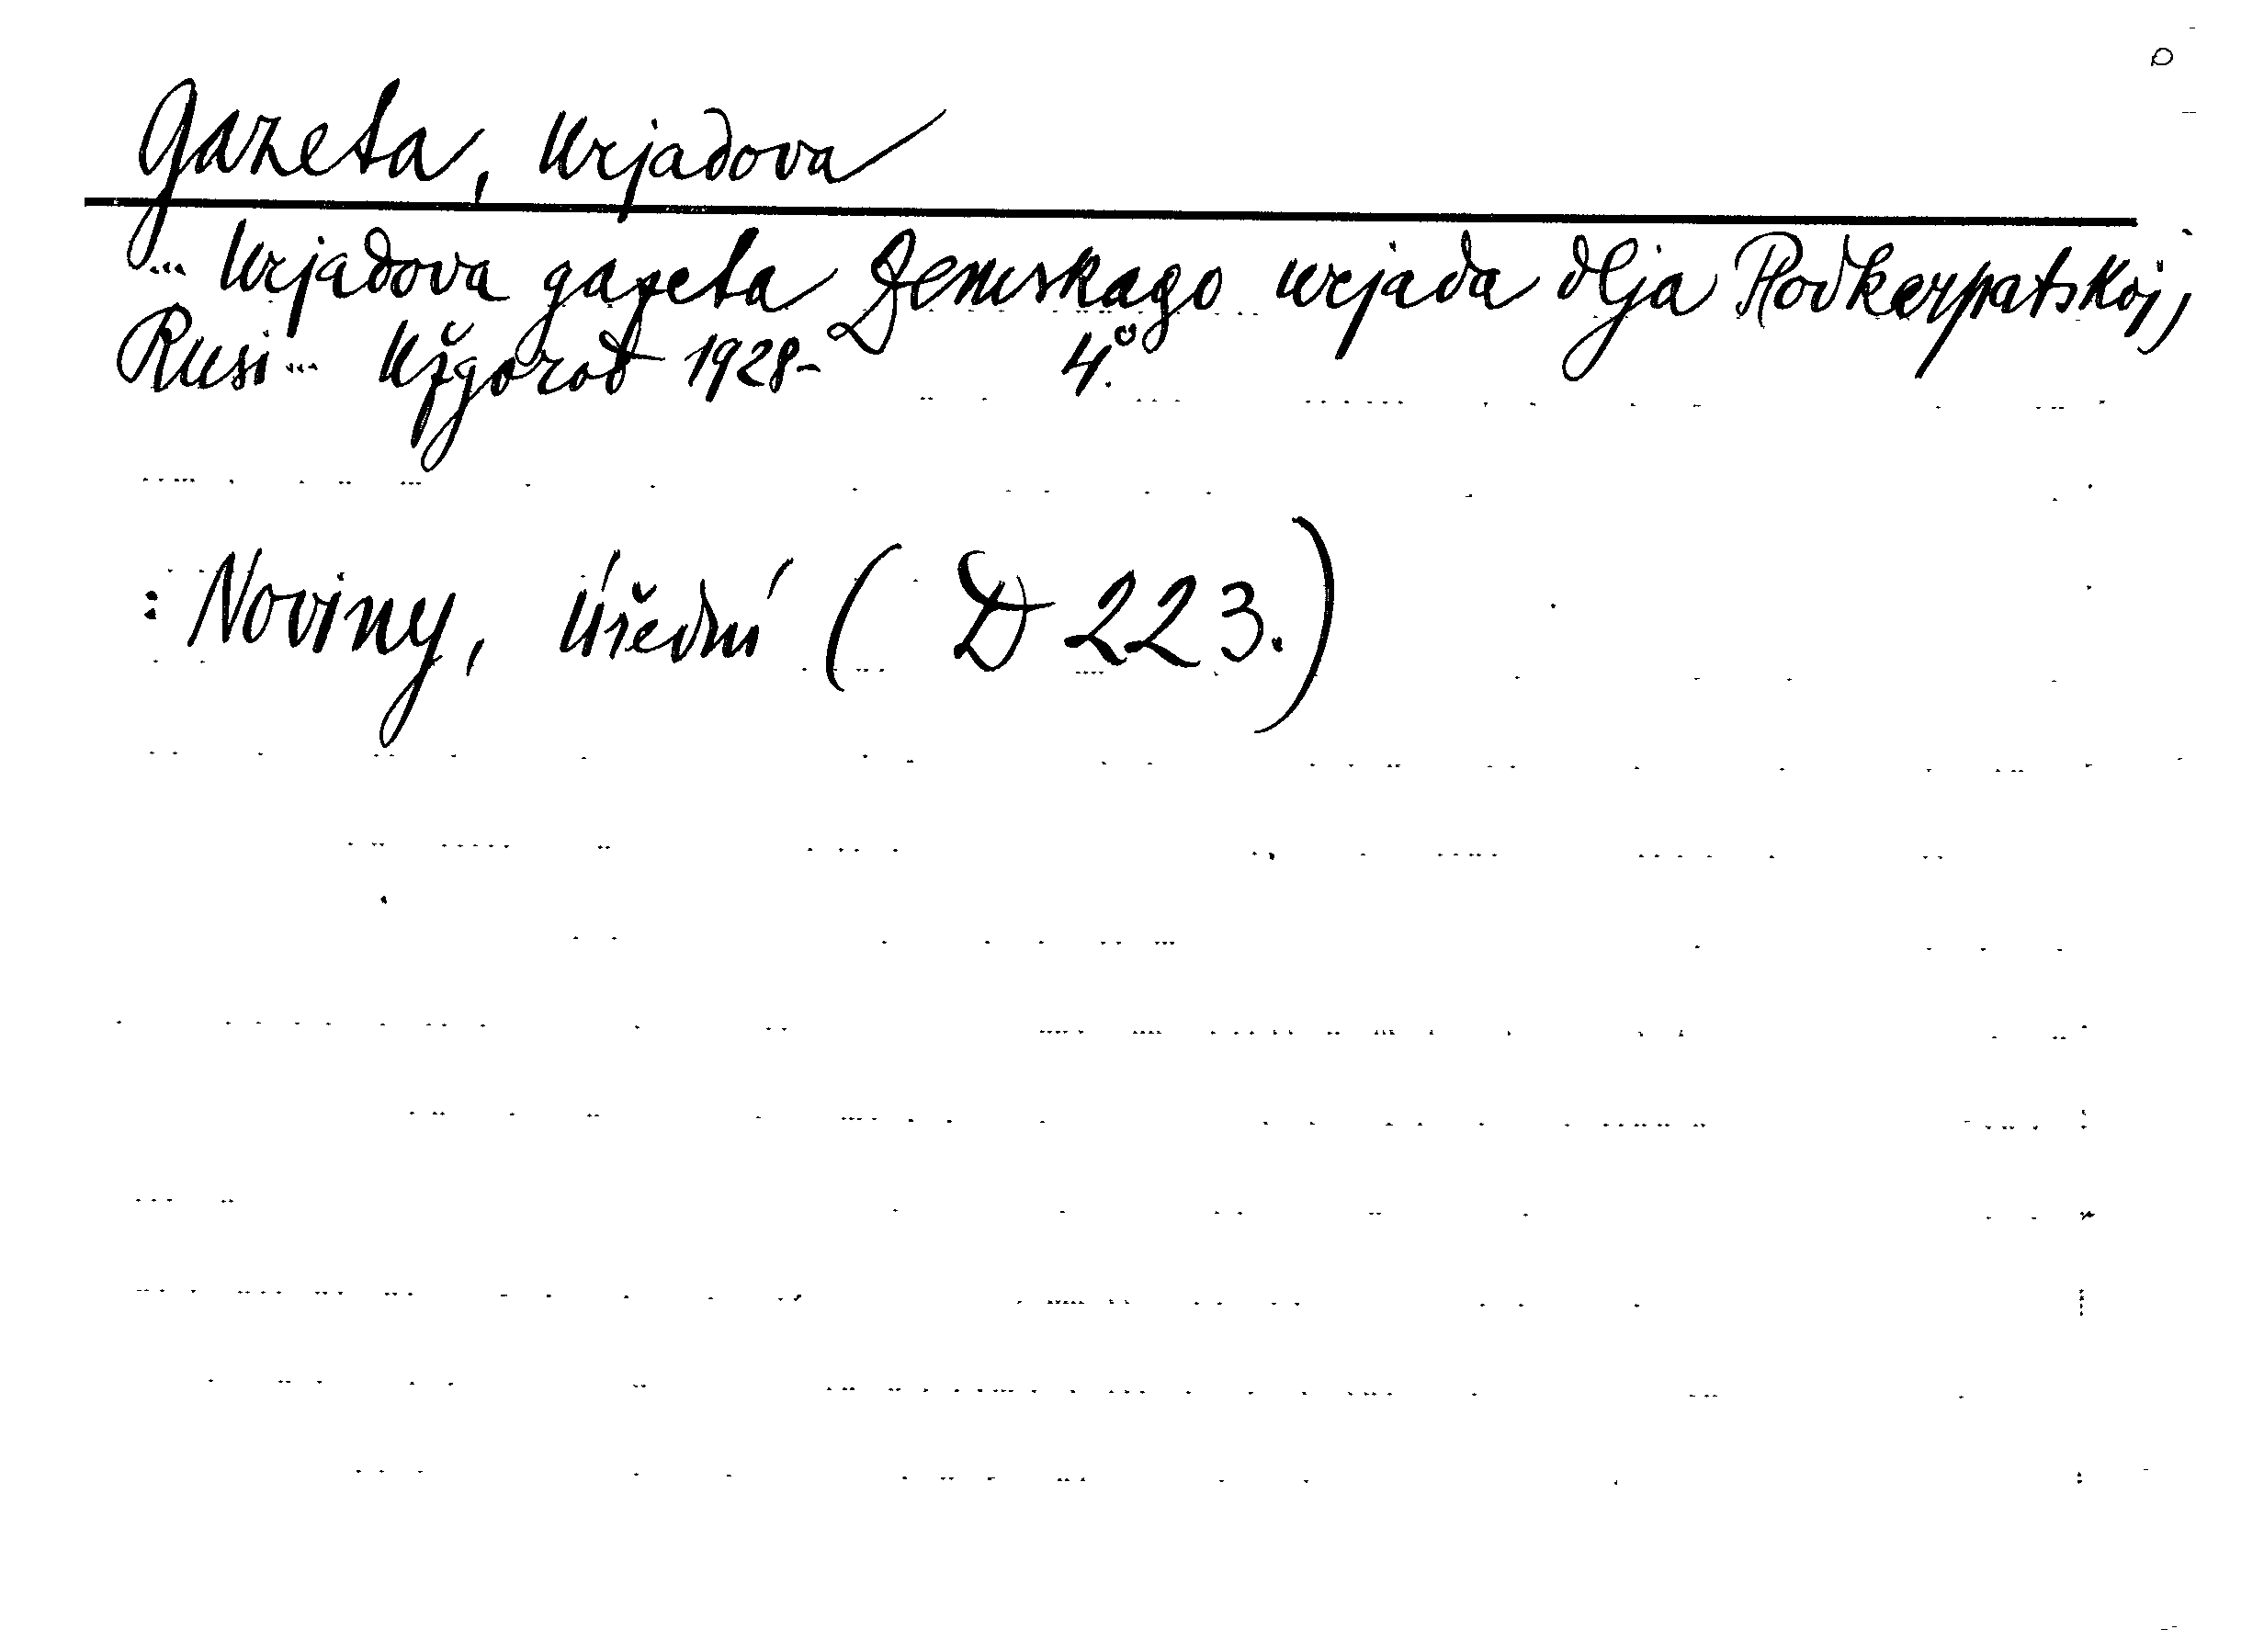 Gazeta, Urjadova
... Urjadova gazeta Zemskago urjada dlja Podkarpatskoj,
Rusi... Užgorod 1928- 4.°
: Noviny, Úřední (D 223.)